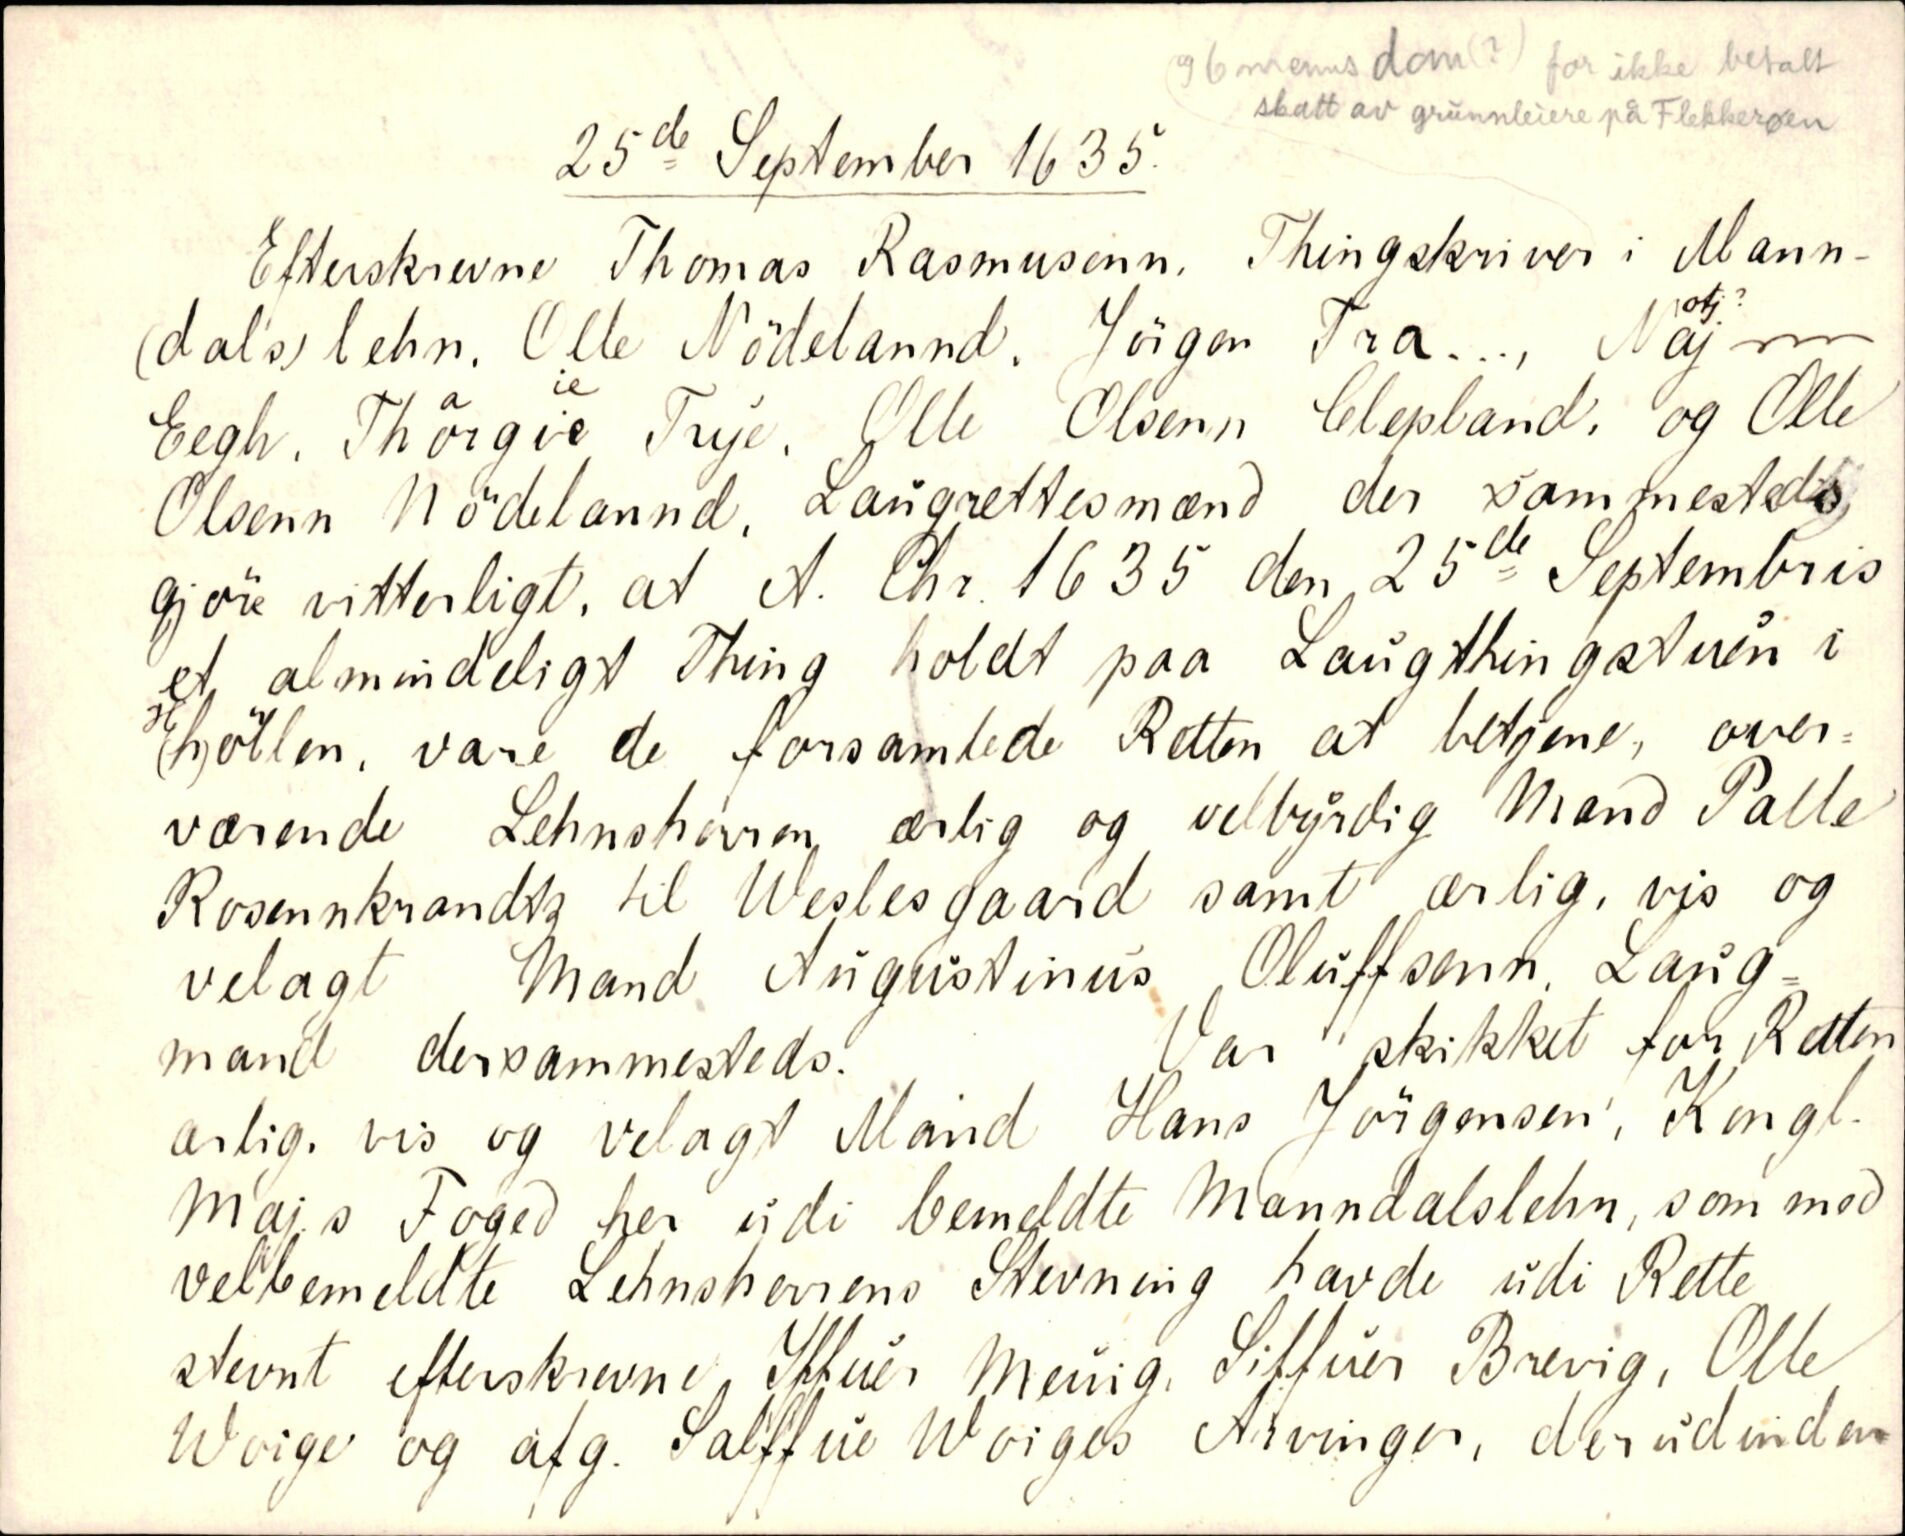 96 menns dom(?) for ikke betalt
skatt av grunnleiere på Flekkerøen
25de September 1635.
Efterskrevne Thomas Rasmusenn, Thingskriver i Mann-
(dals) lehn, Olle Nödelannd, Jörgen Tra..., Naj
otj?
Eegh, Thörgie Trye, Olle Olsenn Clepland, og Olle
a ie
Olsenn Nödelannd, Laugrettesmænd der sammesteds
gjöre vitterligt, at A. Chr. 1635 den 25de Septembris
et almindeligt Thing holdt paa Laugthingstuen i
(h)öllen, vare de forsamlede Retten at betjene, over=
værende Lehnsherren ærlig og velbyrdig Mand Palle
Rosennkrandtz til Weslesgaard samt ærlig, vis og
velagt Mand Augustinus Oluffsenn, Laug=
mand dersammesteds. Var skikket for Retten
ærlig, vis og velagt Mand Hans Jörgensen, Kongl.
Maj.s Foged her udi bemeldte Manndalslehn, som med
velbemeldte Lehnsherrens Stevning havde udi Rette
stevnt efterskrevne Iffuer Meuig, Siffuer Brevig, Olle
Woige og afg. Salffue Woiges Arvinger, derudinden